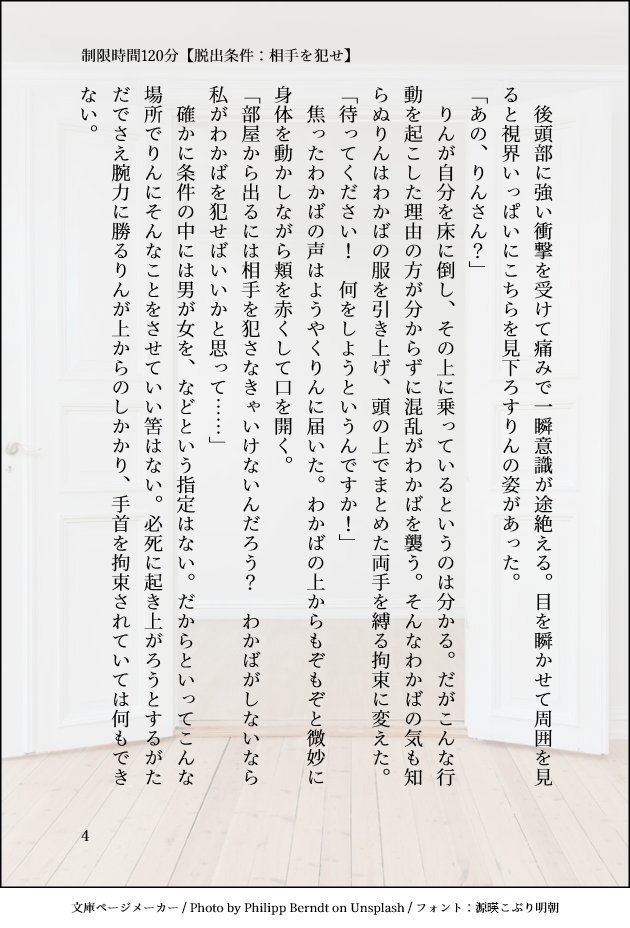 制限時間120分【脱出条件：相手を犯せ】
　後頭部に強い衝撃を受けて痛みで一瞬意識が途絶える。目を瞬かせて周囲を見
ると視界いっぱいにこちらを見下ろすりんの姿があった。
「あの、りんさん？」
　りんが自分を床に倒し、その上に乗っているというのは分かる。だがこんな行
動を起こした理由の方が分からずに混乱がわかばを襲う。そんなわかばの気も知
らぬりんはわかばの服を引き上げ、頭の上でまとめた両手を縛る拘束に変えた。
「待ってください！　何をしようというんですか！」
　焦ったわかばの声はようやくりんに届いた。わかばの上からもぞもぞと微妙に
身体を動かしながら頬を赤くして口を開く。
「部屋から出るには相手を犯さなきゃいけないんだろう？　わかばがしないなら
私がわかばを犯せばいいかと思って……」
　確かに条件の中には男が女を、などという指定はない。だからといってこんな
場所でりんにそんなことをさせていい筈はない。必死に起き上がろうとするがた
だでさえ腕力に勝るりんが上からのしかかり、手首を拘束されていては何もでき
ない。
4
文庫ページメーカー / Photo by Philipp Berndt on Unsplash / フォント：源暎こぶり明朝